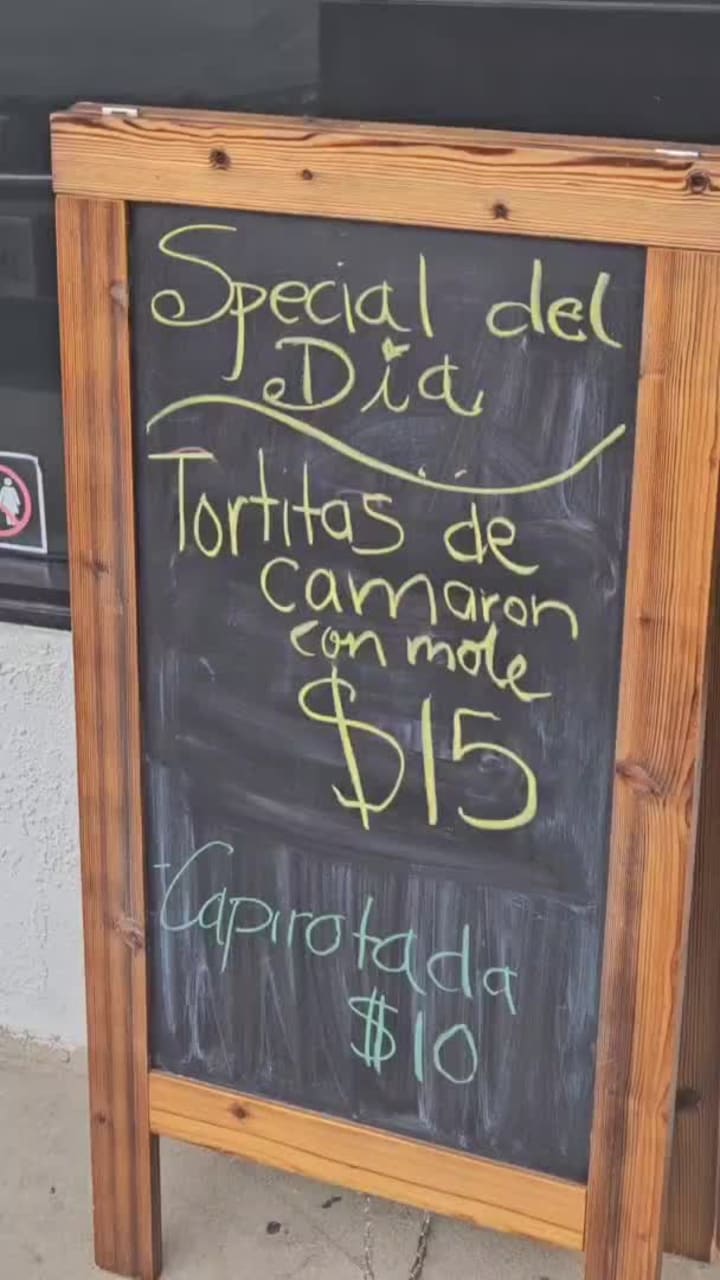 Special del
Dia
Tortitas de
camaron
con mole
$15
-Capirotada
$10